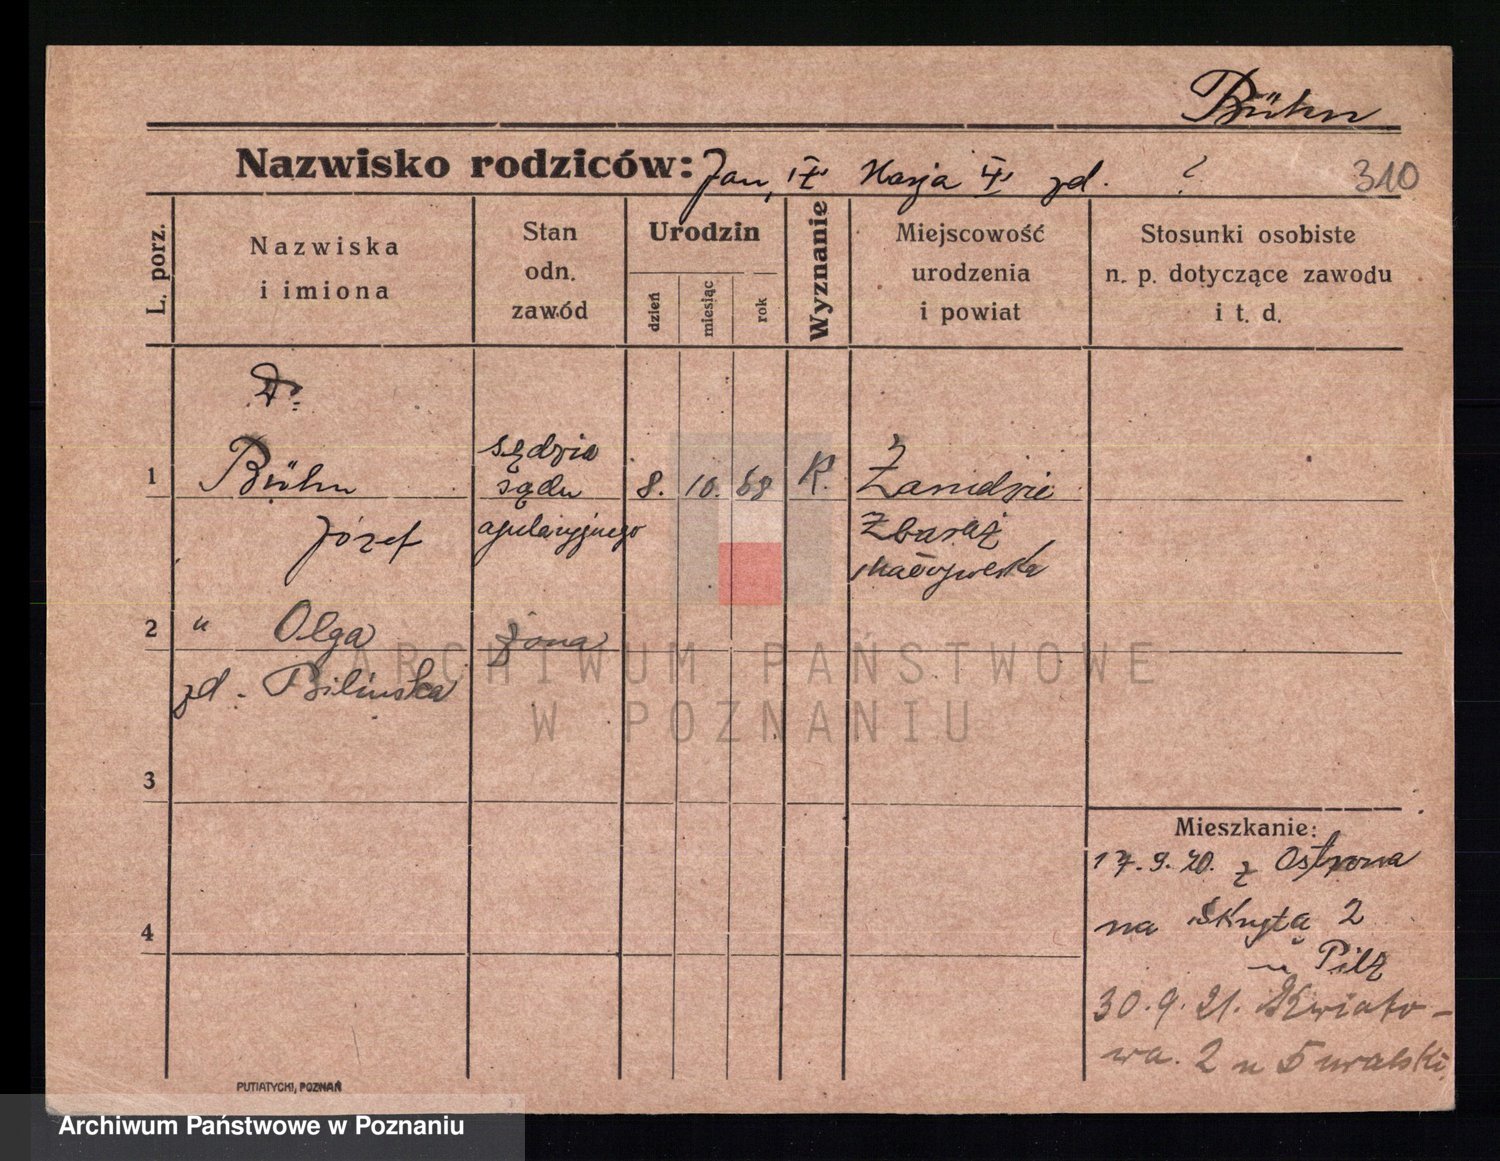 Bühn
Nazwisko rodziców: Jan, Marja zd. ?
310
L. porz.
Nazwiska
i imiona
Stan
odn.
zawód
Urodzin
dzień
miesiąc
rok
Wyznanie
Miejscowość
urodzenia
i powiat
Stosunki osobiste
n. p. dotyczące zawodu
i t. d.
Dr.
1
Bühn
Józef
sędzia
sądu
apelacyjnego
8. 10. 68
K.
Zarudzie
Zbaraż
Małopolska
2
" Olga
zd. Bilinska
żona
3
4
Mieszkanie:
17.9.20. z Ostrowa
na Skrytą 2
u Pilz
30.9.21. Kwiato-
wa. 2 u Suwalski.
PUTIATYCKI, POZNAŃ
ARCHIWUM PAŃSTWOWE
W POZNANIU
Archiwum Państwowe w Poznaniu